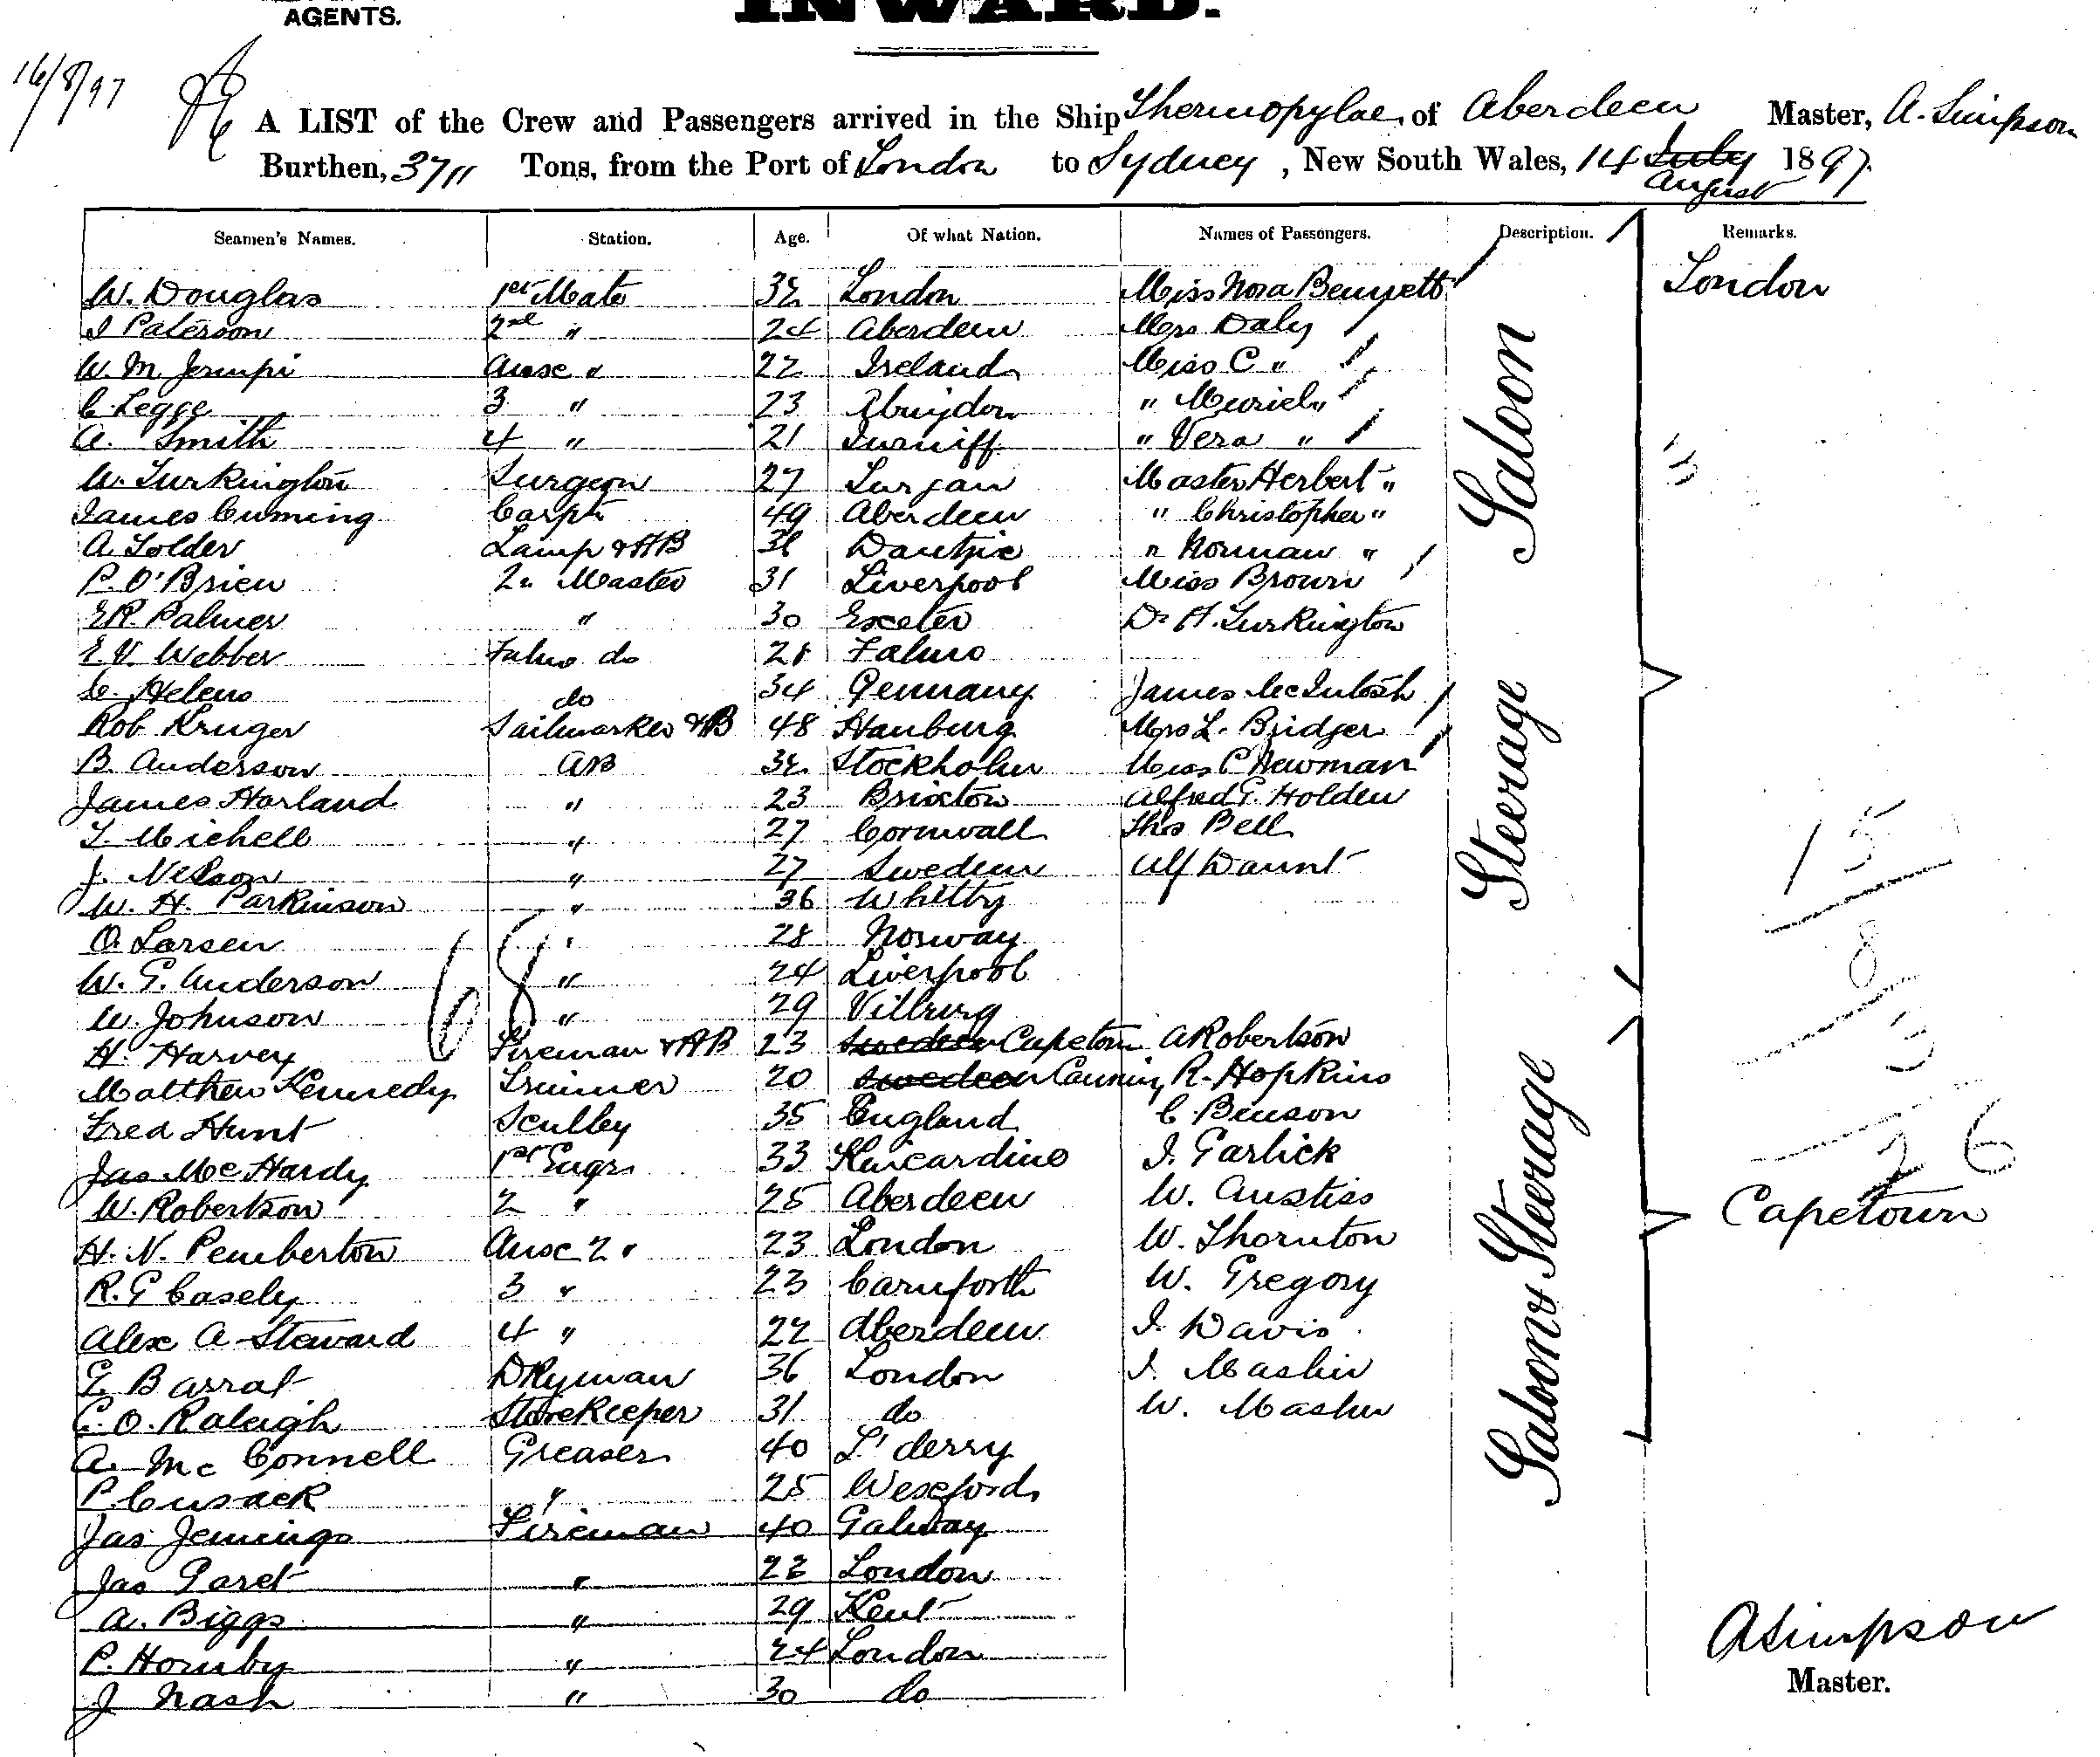 AGENTS.
INWARD.
16/8/97
A LIST of the Crew and Passengers arrived in the Ship Thermopylae, of Aberdeen Master, A. Simpson
Burthen, 3711 Tons, from the Port of London to Sydney, New South Wales, 14 July August 1897.
Seamen's Names. Station. Age. Of what Nation. Names of Passengers. Description. Remarks.
W. Douglas 1st Mate 32 London Miss Nora Bennett London
J Paterson 2nd " 24 Aberdeen Mrs Daly
W. M. 22 Ireland Miss C "
C. Legge 3 " 23 " Muriel "
A. Smith 4 " 21 " Vera "
W. Turkington Surgeon 27 Lurgan Master Herbert "
James Cuming Carptr 49 Aberdeen " Christopher "
A. Lamp & AB Dantzic " Norman "
P. O'Brien 2r Master 31 Liverpool Miss Brown
E R. Palmer " 30 Exeter Dr H. Turkington
E. V. Webber do 28
Helms do 34 Germany James McIntosh
Rob Kruger Sailmaker & AB 48 Hamburg Mrs L. Bridger
B. Anderson AB 32 Stockholm Miss C Newman
James Harland " 23 Brixton Alfred G. Holden
T. Michell " 27 Cornwall Thos Bell
J. Nelson " 27 Sweden Alf Daunt
W. H. Parkinson " 36 Whitby
O. Larsen " 28 Norway
W. G. Anderson " 24 Liverpool
W. Johnson " 29
H. Harvey Fireman & AB 23 Sweden Capetown A Robertson
Matthew Kennedy Trimmer 20 Sweden R. Hopkins
Fred Hunt Sculley 35 England C. Benson
Jas McHardy 1st Engr 33 Kincardine J. Garlick
W. Robertson 2 " 25 Aberdeen W. Anstiss
H. N. Pemberton 2 " 23 London W. Thornton
R. G Casely 3 " 23 Carnforth W. Gregory
Alex A. Steward 4 " 22 Aberdeen J. Davis
E Barrat DKyman 36 London J. Maskin
C. O. Raleigh StoreKeeper 31 do W.
A. McConnell Greaser 40 L'derry
P. Cusack " 25 Wexford
Jas Jennings Fireman 40 Galway
Jas " London
A. Biggs " 29 Kent
P. Hornby " 24 London
J Nash " 30 do
Saloon
Steerage
Saloon & Steerage
Capetown
68
13
15
8
3
26
A Simpson
Master.